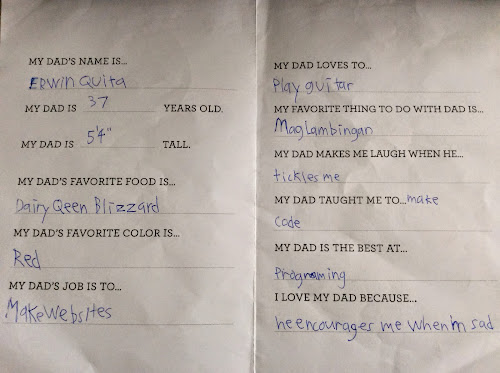 MY DAD'S NAME IS...
Edwin Quita
MY DAD IS 37 YEARS OLD.
MY DAD IS 5'4" TALL.
MY DAD'S FAVORITE FOOD IS...
Dairy Qeen Blizzard
MY DAD'S FAVORITE COLOR IS...
Red
MY DAD'S JOB IS TO...
Make Websites
MY DAD LOVES TO...
Play guitar
MY FAVORITE THING TO DO WITH DAD IS...
Maglambingan
MY DAD MAKES ME LAUGH WHEN HE...
tickles me
MY DAD TAUGHT ME TO...make
Code
MY DAD IS THE BEST AT...
Programing
I LOVE MY DAD BECAUSE...
he encourages me when im sad